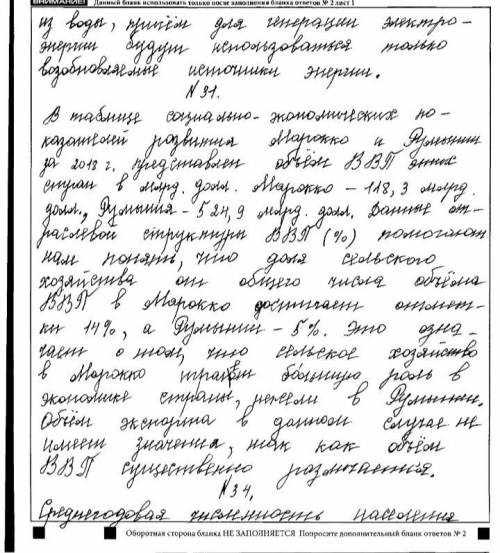 ВНИМАНИЕ! Данный бланк использовать только после заполнения бланка ответов № 2 лист 1
из воды, причём для генерации электро-
энергии будут использоваться только
возобновляемые источники энергии.
N31.
В таблице социально-экономических по-
казателей развития Марокко и Румынии
за 2018 г. представлен объём ВВП этих
стран в млрд. долл. Марокко – 118, 3 млрд.
долл., Румыния – 524, 9 млрд. долл. Данные от-
раслевой структуры ВВП (%) помогают
нам понять, что доля сельского
хозяйства от общего числа объёма
ВВП в Марокко достигает отмет-
ки 14%, а Румынии – 5%. Это озна-
чает о том, что сельское хозяйство
в Марокко играет большую роль в
экономике страны, нежели в Румынии.
Объём экспорта в данном случае не
имеет значения, так как объём
ВВП существенно различается.
N34.
Среднегодовая численность населения
Оборотная сторона бланка НЕ ЗАПОЛНЯЕТСЯ Попросите дополнительный бланк ответов № 2